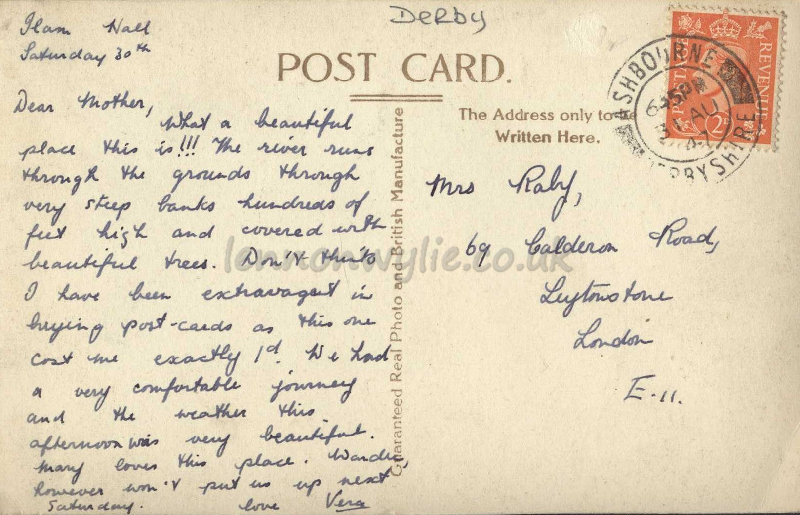 DERBY
Ilam Hall
Saturday 30th
POST CARD.
Dear Mother,
What a beautiful
place this is!!! The river runs
through the grounds through
very steep banks hundreds of
feet high and covered with
beautiful trees. Don't think
I have been extravagent in
buying post-cards as this one
cost me exactly 1d. We had
a very comfortable journey
and the weather this
afternoon was very beautiful.
Mary loves this place.
however won't put us up next
Saturday. love Vera
Guaranteed Real Photo and British Manufacture
The Address only to be
Written Here.
Mrs Raby,
69 Calderon Road,
Leytonstone
London
E.11.
ASHBOURNE
DERBYSHIRE
POSTAGE
REVENUE
lennonwylie.co.uk